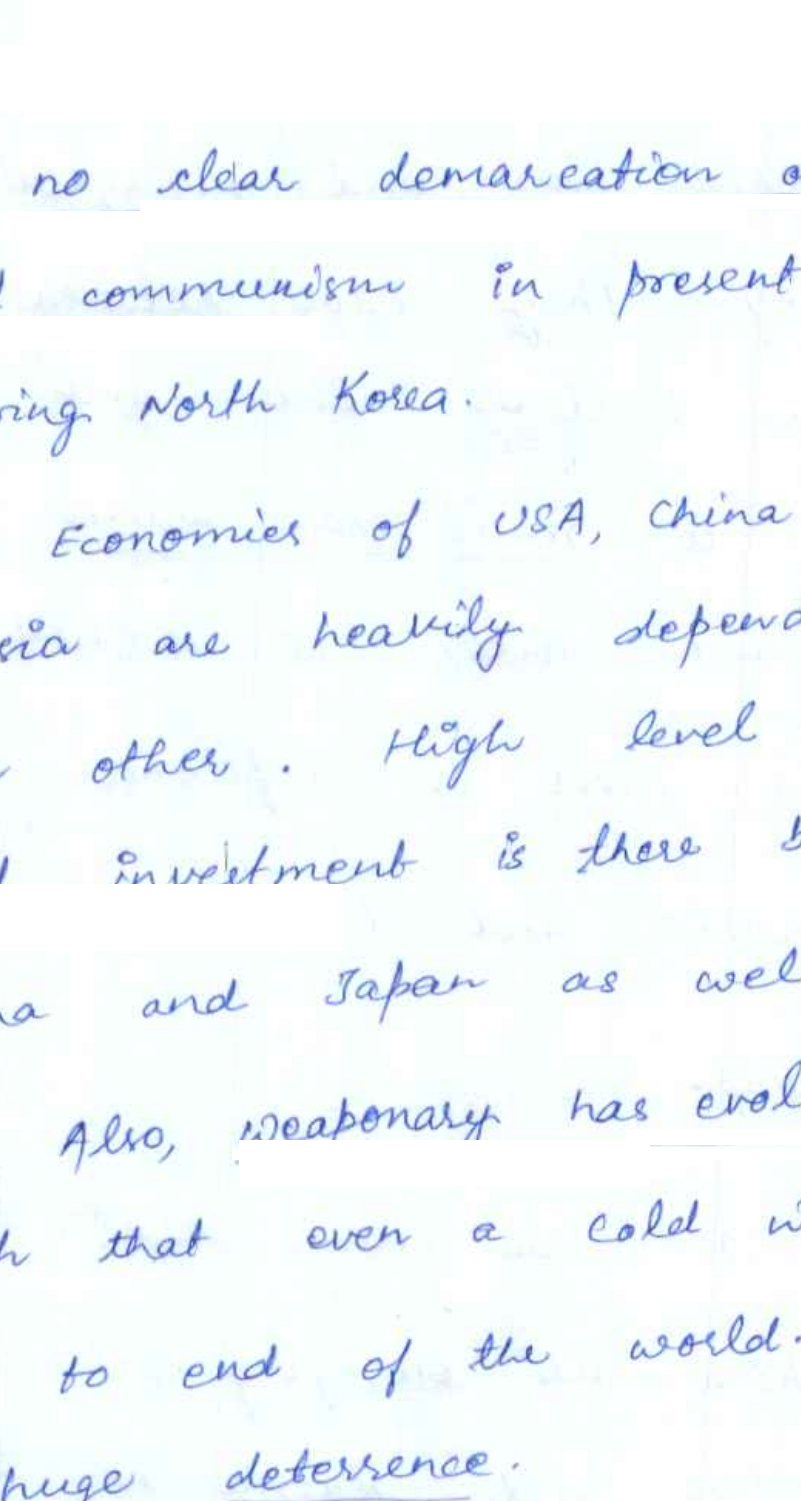 no clear demarcation o
communism in present
ring North Korea.
Economies of USA, China
sia are heavily depend
other. High level
investment is there b
na and Japan as wel
Also, weaponary has evol
h that even a cold w
to end of the world.
huge deterrence.